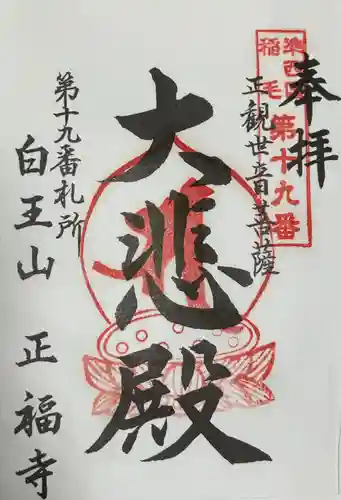 奉拝
準西国
稲毛
第十九番
正観世音菩薩
大悲殿
第十九番札所
白王山 正福寺